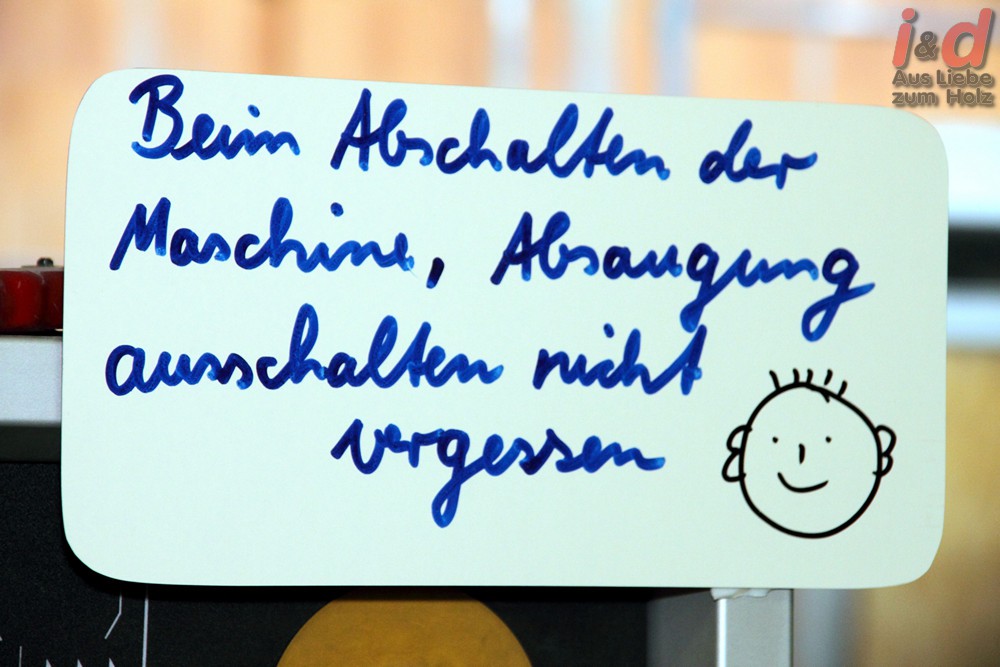 i&d
Aus Liebe
zum Holz
Beim Abschalten der
Maschine, Absaugung
ausschalten nicht
vergessen